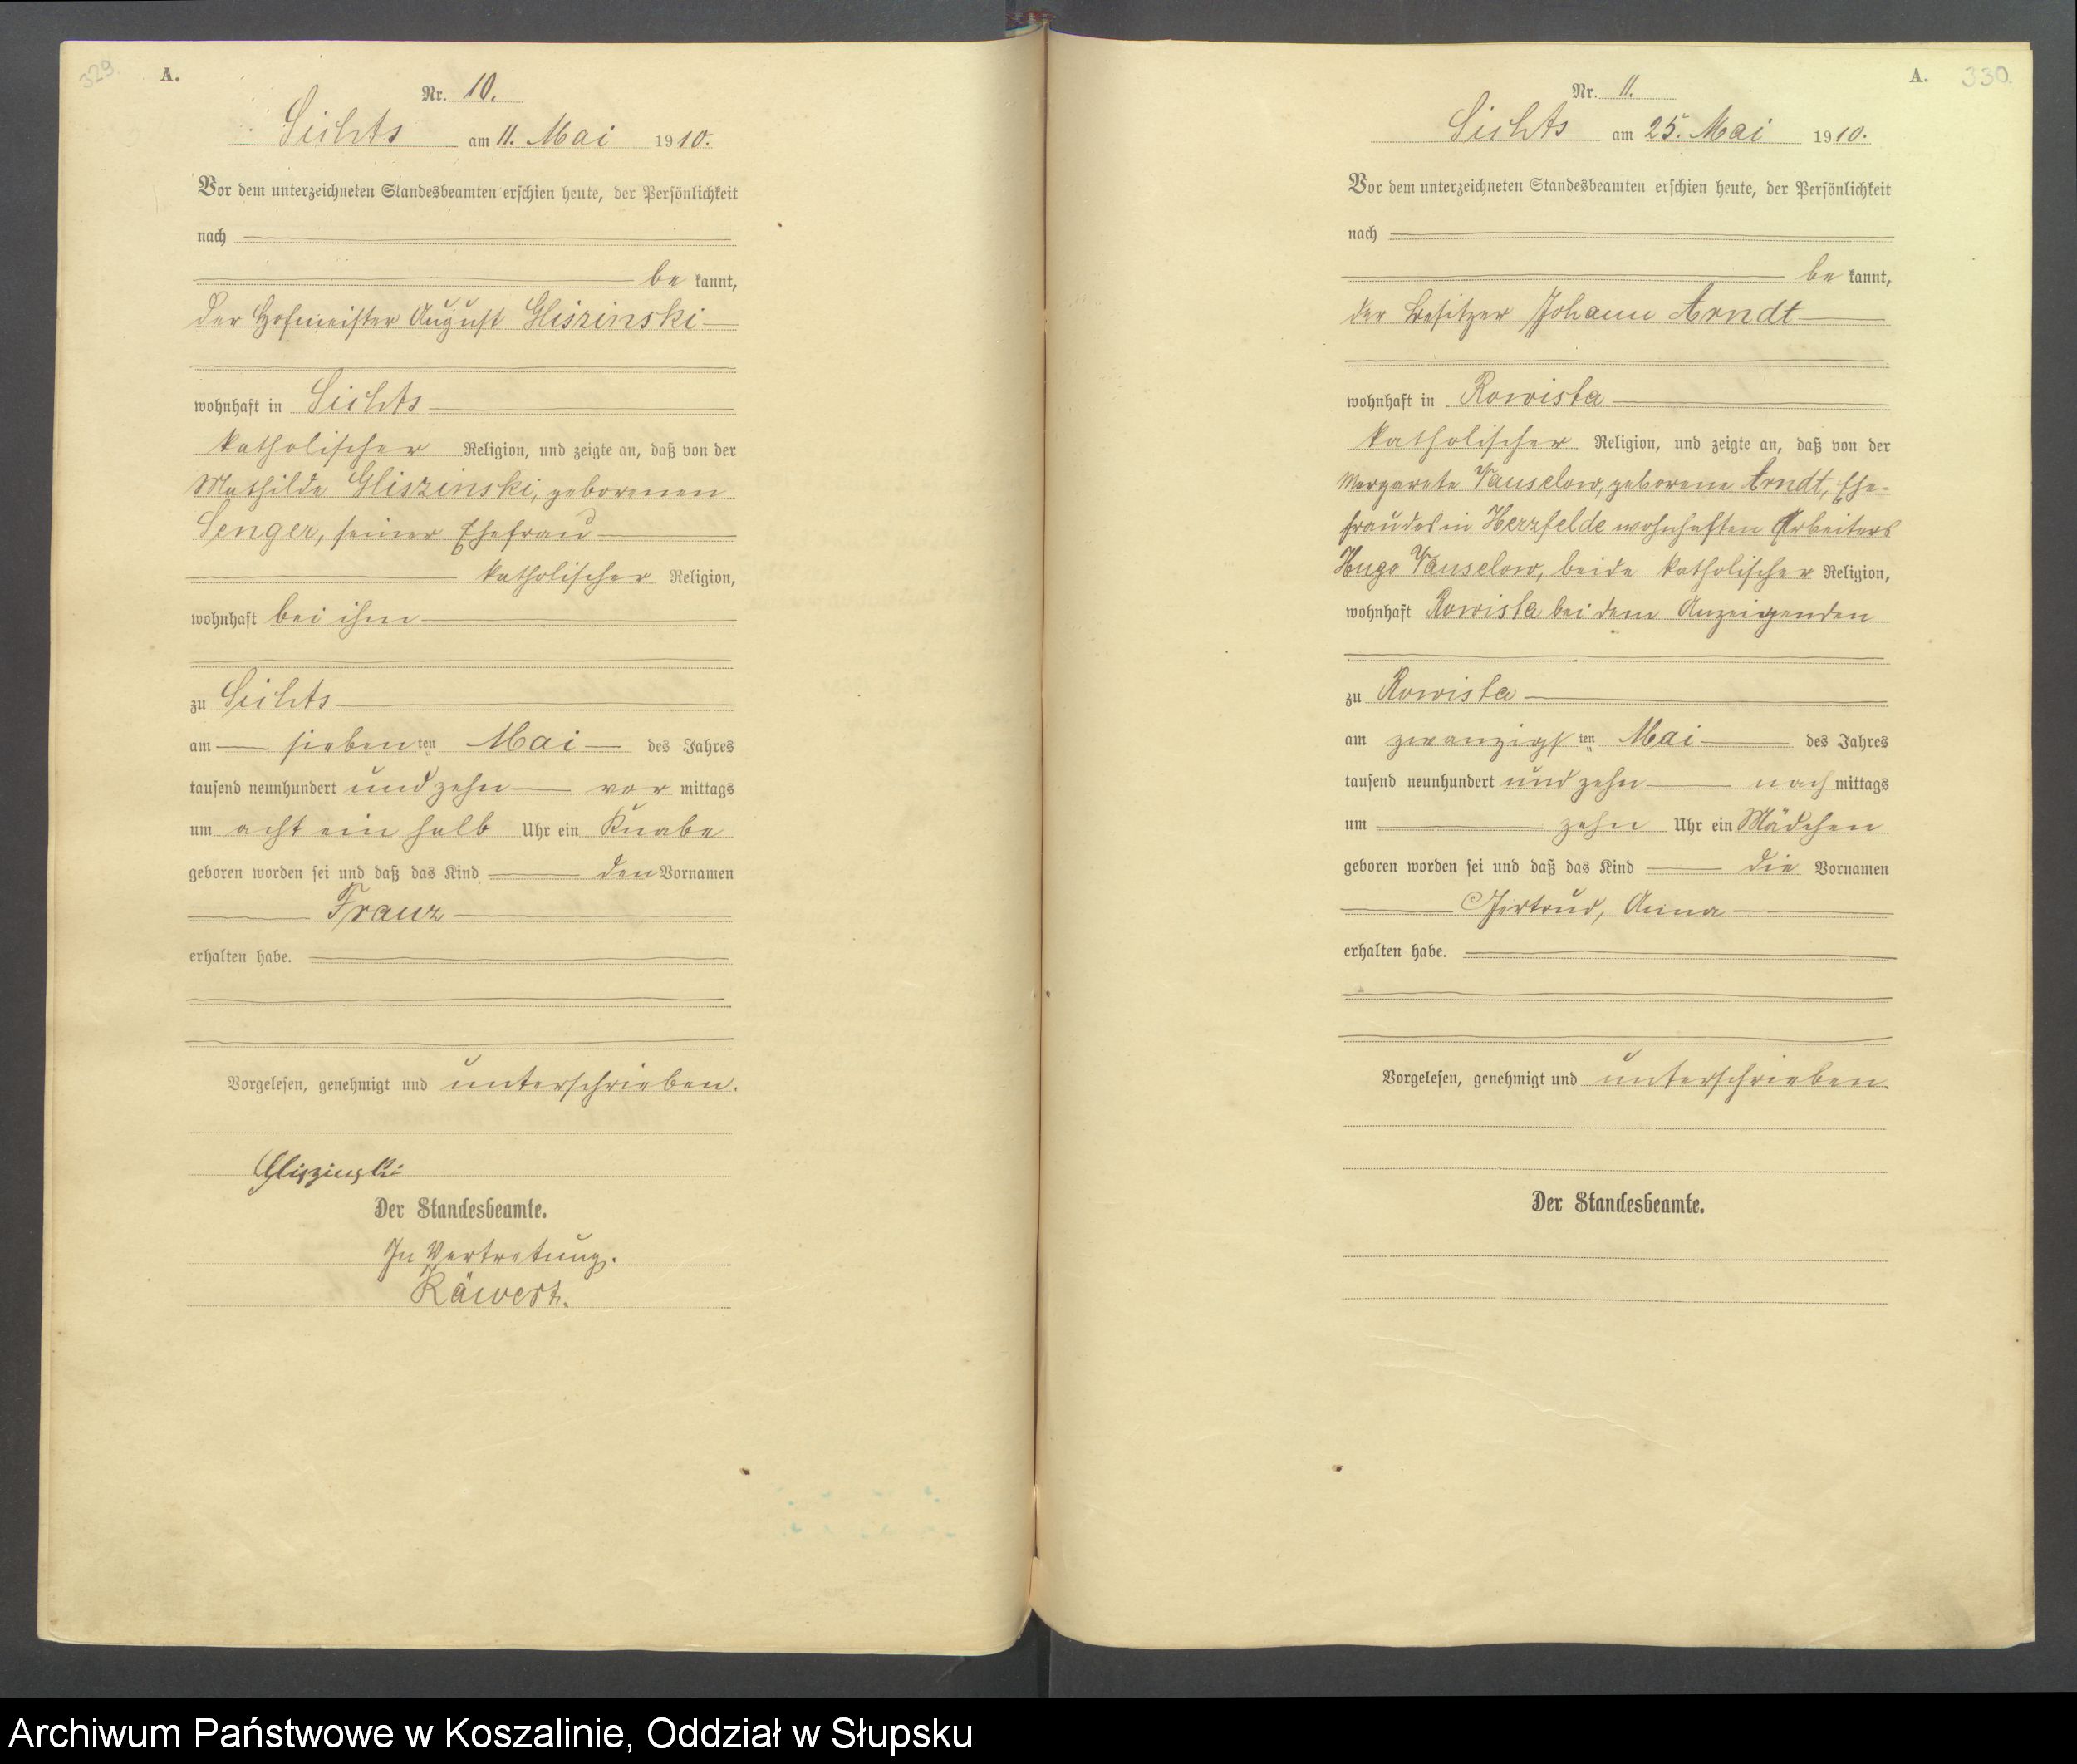 329
A.
Nr. 10.
Sichts am 11. Mai 1910.
Vor dem unterzeichneten Standesbeamten erschien heute, der Persönlichkeit
nach
be kannt,
der Hofmeister August Gliszinski
wohnhaft in Sichts
katholischer Religion, und zeigte an, daß von der
Mathilde Gliszinski, geborenen
Senger, seiner Ehefrau
katholischer Religion,
wohnhaft bei ihm
zu Sichts
am siebenten Mai des Jahres
tausend neunhundert und zehn vor mittags
um acht ein halb Uhr ein Knabe
geboren worden sei und daß das Kind den Vornamen
Franz
erhalten habe.
Vorgelesen, genehmigt und unterschrieben.
Gliszinski
Der Standesbeamte.
In Vertretung.
A. 330.
Nr. 11.
Sichts am 25. Mai 1910.
Vor dem unterzeichneten Standesbeamten erschien heute, der Persönlichkeit
nach
be kannt,
der Besitzer Johann Arndt
wohnhaft in Rowista
katholischer Religion, und zeigte an, daß von der
Margarete Vanselow, geborene Arndt, Ehe-
frau des in Herzfelde wohnhaften Arbeiters
Hugo Vanselow, beide katholischer Religion,
wohnhaft Rowista bei dem Anzeigenden
zu Rowista
am zwanzigsten Mai des Jahres
tausend neunhundert und zehn nach mittags
um zehn Uhr ein Mädchen
geboren worden sei und daß das Kind die Vornamen
Gertrud, Anna
erhalten habe.
Vorgelesen, genehmigt und unterschrieben.
Der Standesbeamte.
Archiwum Państwowe w Koszalinie, Oddział w Słupsku